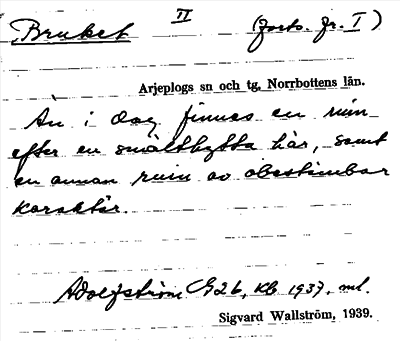 Bruket II (forts. fr. I)
Arjeplogs sn och tg, Norrbottens län.
Än i dag finnes en ruin
efter en smälthytta här, samt
en annan ruin av obestämbar
karaktär.
Adolfström G2b, Kb 1937, ml.
Sigvard Wallström, 1939.